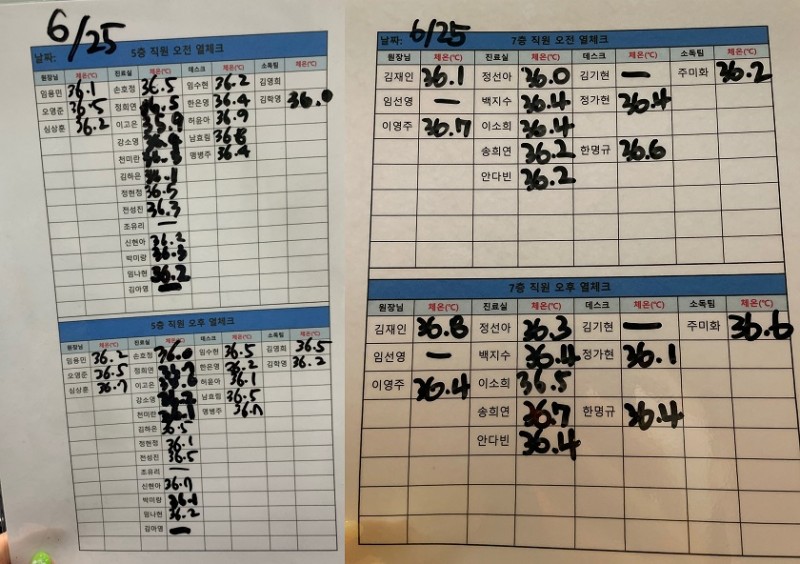 6/25
날짜: 5층 직원 오전 열체크
원장님 체온(℃) 진료실 체온(℃) 데스크 체온(℃) 소독팀 체온(℃)
임용민 36.1 손호정 36.5 임수현 36.2 김영희
오영준 36.5 정희연 36.5 한은영 36.4 김학영 36.0
심상훈 36.2 이고은 35.9 허윤아 36.9
강소영 남효림 36.8
천미란 명병주 36.4
김하은 36.1
정현정 36.5
전성진 36.3
조유리 —
신현아 36.2
박미랑 36.3
임나현 36.2
김아영 —
5층 직원 오후 열체크
원장님 체온(℃) 진료실 체온(℃) 데스크 체온(℃) 소독팀 체온(℃)
임용민 36.2 손호정 36.0 임수현 36.5 김영희 36.5
오영준 36.5 정희연 한은영 36.2 김학영 36.2
심상훈 36.7 이고은 허윤아 36.1
강소영 남효림 36.5
천미란 36.1 명병주 36.7
김하은 36.5
정현정 36.1
전성진 36.5
조유리 —
신현아 36.7
박미랑 36.1
임나현 36.2
김아영 —
6/25
날짜: 7층 직원 오전 열체크
원장님 체온(℃) 진료실 체온(℃) 데스크 체온(℃) 소독팀 체온(℃)
김재인 36.1 정선아 36.0 김기현 — 주미화 36.2
임선영 — 백지수 36.4 정가현 36.4
이영주 36.7 이소희 36.4
송희연 36.2 한명규 36.6
안다빈 36.2
7층 직원 오후 열체크
원장님 체온(℃) 진료실 체온(℃) 데스크 체온(℃) 소독팀 체온(℃)
김재인 36.8 정선아 36.3 김기현 — 주미화 36.6
임선영 — 백지수 36.4 정가현 36.1
이영주 36.4 이소희 36.5
송희연 36.7 한명규 36.4
안다빈 36.4